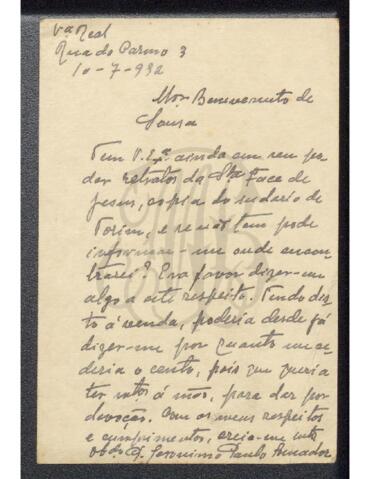 Vª Real
Rua do Carmo 3
10-7-932
Mor Benevenuto de
Sousa
Tem V. Exª ainda em seu po-
der retratos da Stª Face de
Jesus, copia do sudario de
Torim, e se não tem pode
informar-me onde encon-
trarei? Era favor dizer-me
algo a este respeito. Tendo dis-
to á venda, poderia desde já
dizer-me por quanto me ce-
deria o cento, pois que queria
ter á mão, para dar por
devoção. Com os meus respeitos
e cumprimentos, creia-me
obdº Jeronimo Paulo Amador